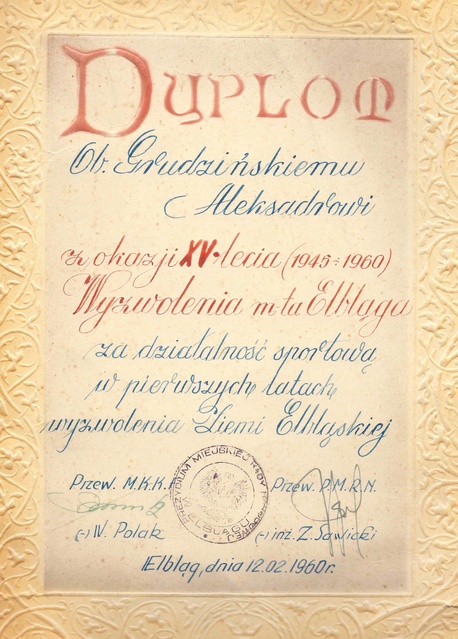 DYPLOM
Ob. Grudzińskiemu
Aleksadrowi
z okazji XV-lecia (1945÷1960)
Wyzwolenia m-ta Elbląga
za działalność sportową
w pierwszych latach
wyzwolenia Ziemi Elbląskiej
Przew. M.K.K.F.
(-) W. Polak
PREZYDIUM MIEJSKIEJ RADY NARODOWEJ
W ELBLĄGU
Przew. P.M.R.N.
(-) inż. Z. Sawicki
Elbląg, dnia 12.02.1960r.